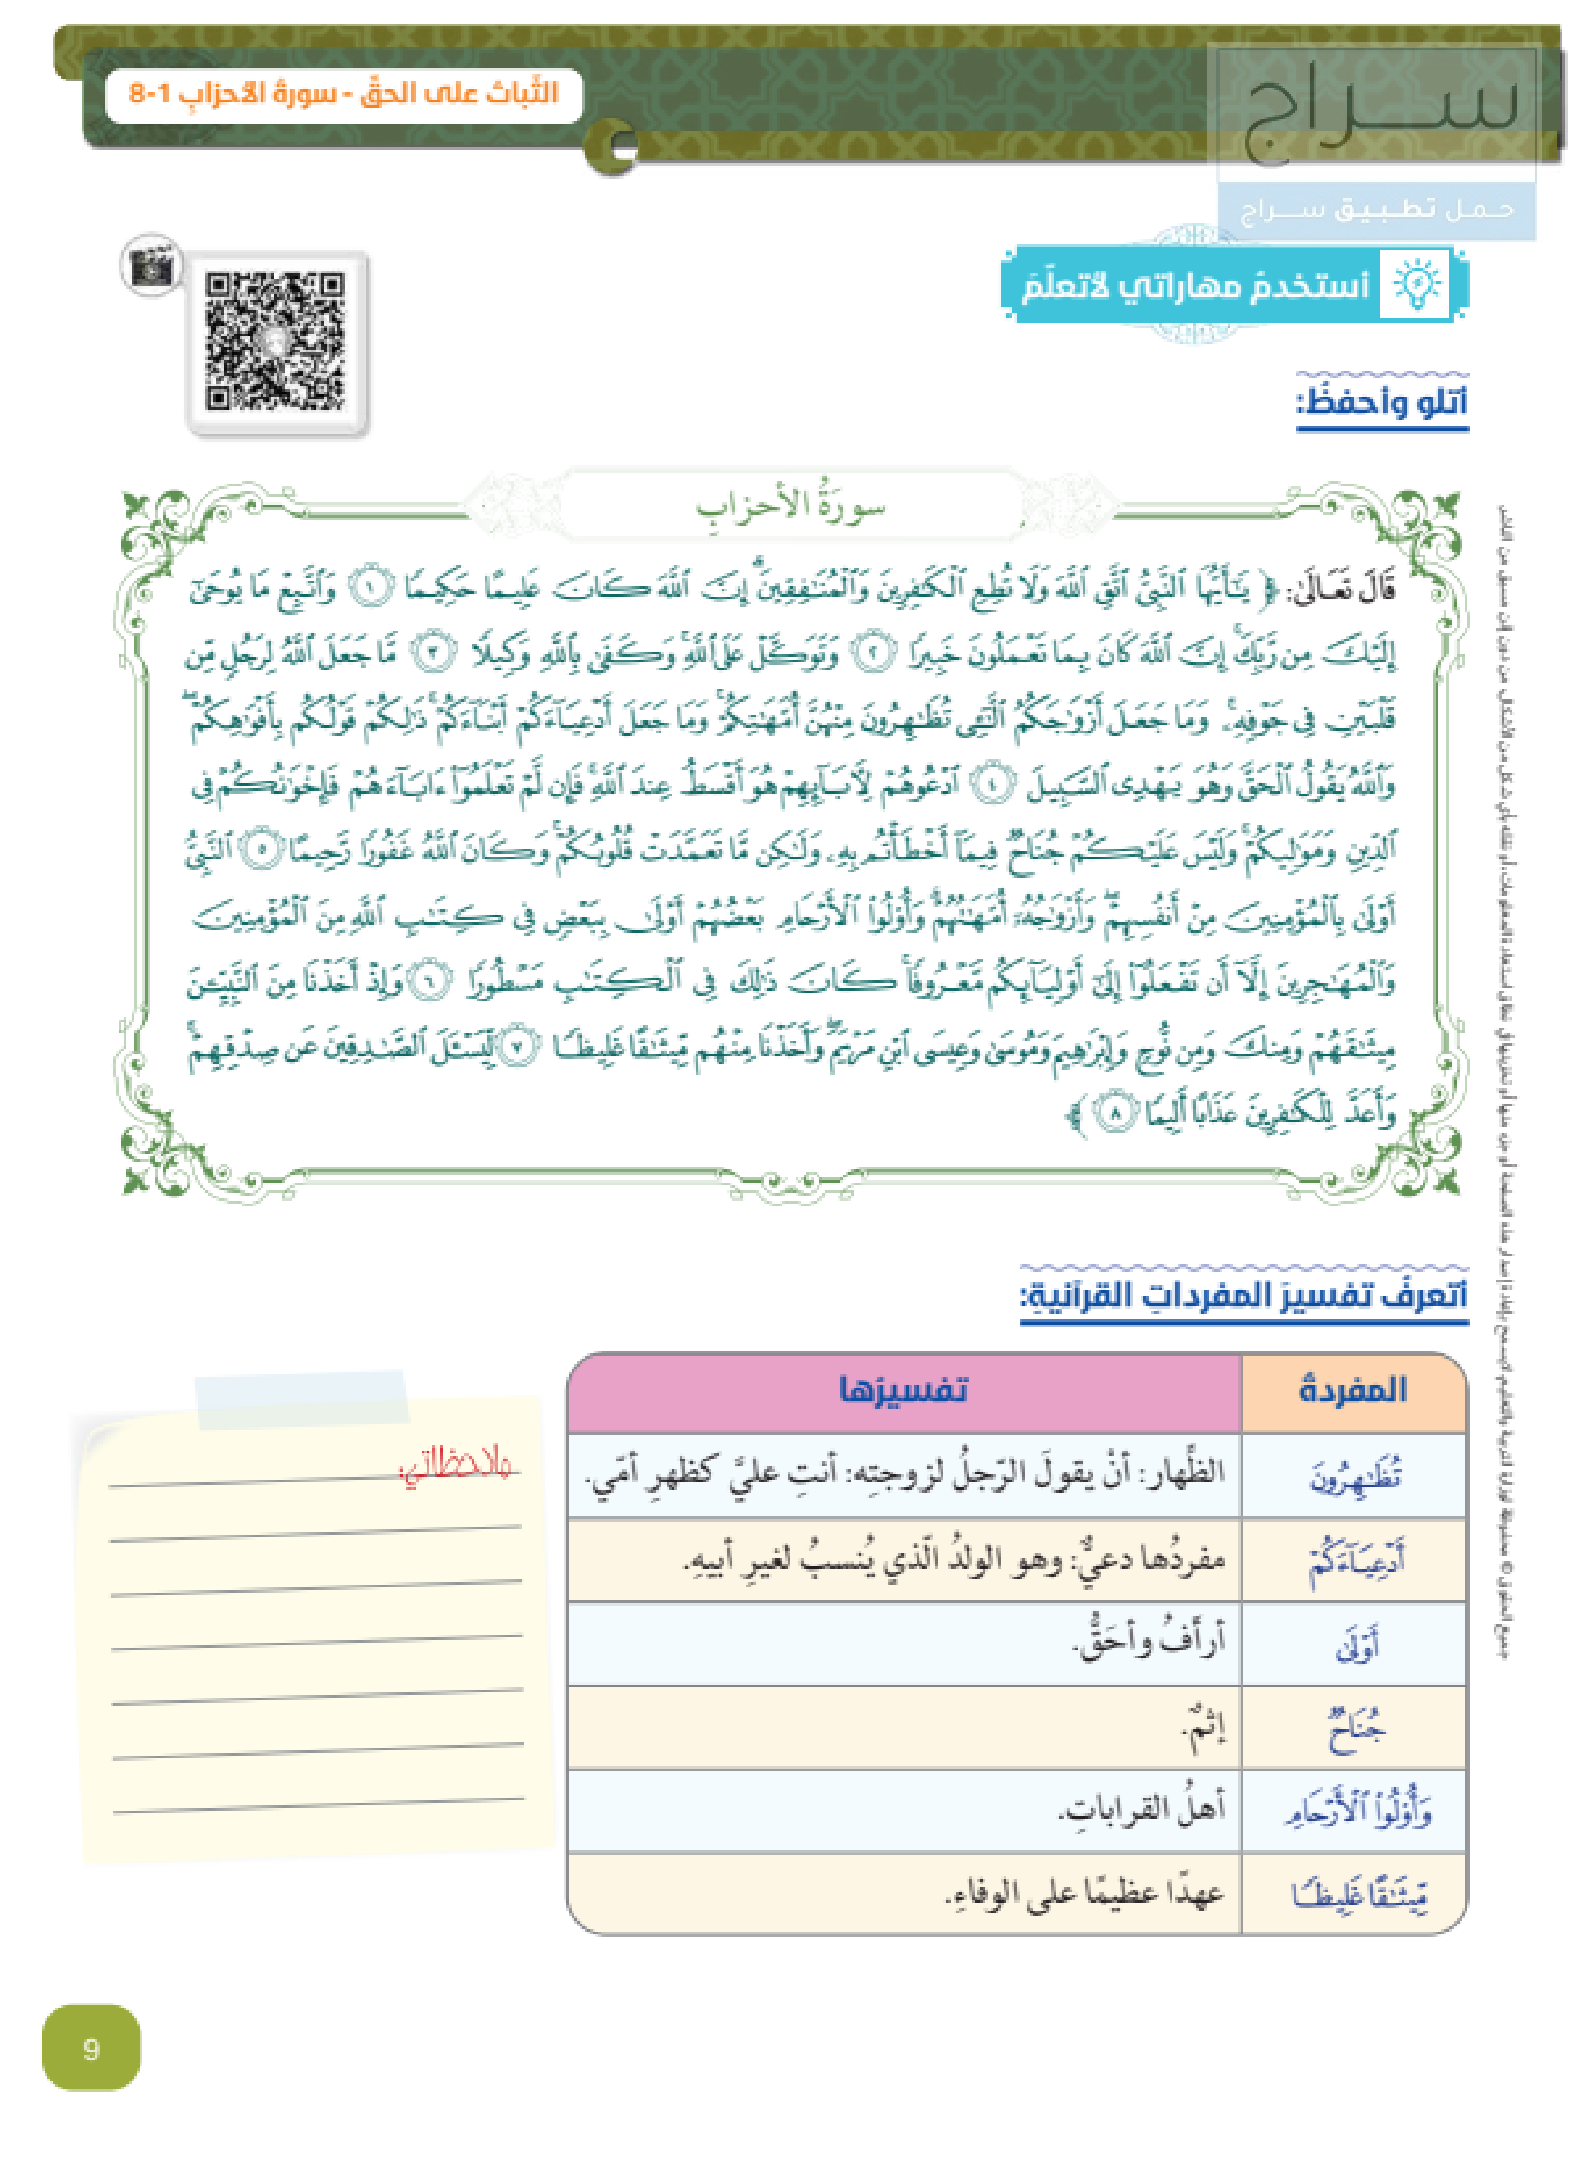 الثَّباتُ على الحقِّ - سورةُ الأحزابِ 1-8
سراج
حمل تطبيق سراج
أستخدمُ مهاراتي لأتعلّمَ
أتلو وأحفظُ:
سورَةُ الأحزابِ
قَالَ تَعَالَىٰ: ﴿ يَـٰٓأَيُّهَا ٱلنَّبِىُّ ٱتَّقِ ٱللَّهَ وَلَا تُطِعِ ٱلْكَـٰفِرِينَ وَٱلْمُنَـٰفِقِينَ ۗ إِنَّ ٱللَّهَ كَانَ عَلِيمًا حَكِيمًا ١ وَٱتَّبِعْ مَا يُوحَىٰٓ
إِلَيْكَ مِن رَّبِّكَ ۚ إِنَّ ٱللَّهَ كَانَ بِمَا تَعْمَلُونَ خَبِيرًا ٢ وَتَوَكَّلْ عَلَى ٱللَّهِ ۚ وَكَفَىٰ بِٱللَّهِ وَكِيلًا ٣ مَّا جَعَلَ ٱللَّهُ لِرَجُلٍ مِّن
قَلْبَيْنِ فِى جَوْفِهِۦ ۚ وَمَا جَعَلَ أَزْوَٰجَكُمُ ٱلَّـٰٓـِٔى تُظَـٰهِرُونَ مِنْهُنَّ أُمَّهَـٰتِكُمْ ۚ وَمَا جَعَلَ أَدْعِيَآءَكُمْ أَبْنَآءَكُمْ ۚ ذَٰلِكُمْ قَوْلُكُم بِأَفْوَٰهِكُمْ ۖ
وَٱللَّهُ يَقُولُ ٱلْحَقَّ وَهُوَ يَهْدِى ٱلسَّبِيلَ ٤ ٱدْعُوهُمْ لِـَٔابَآئِهِمْ هُوَ أَقْسَطُ عِندَ ٱللَّهِ ۚ فَإِن لَّمْ تَعْلَمُوٓا۟ ءَابَآءَهُمْ فَإِخْوَٰنُكُمْ فِى
ٱلدِّينِ وَمَوَٰلِيكُمْ ۚ وَلَيْسَ عَلَيْكُمْ جُنَاحٌ فِيمَآ أَخْطَأْتُم بِهِۦ وَلَـٰكِن مَّا تَعَمَّدَتْ قُلُوبُكُمْ ۚ وَكَانَ ٱللَّهُ غَفُورًا رَّحِيمًا ٥ ٱلنَّبِىُّ
أَوْلَىٰ بِٱلْمُؤْمِنِينَ مِنْ أَنفُسِهِمْ ۖ وَأَزْوَٰجُهُۥٓ أُمَّهَـٰتُهُمْ ۗ وَأُو۟لُوا۟ ٱلْأَرْحَامِ بَعْضُهُمْ أَوْلَىٰ بِبَعْضٍ فِى كِتَـٰبِ ٱللَّهِ مِنَ ٱلْمُؤْمِنِينَ
وَٱلْمُهَـٰجِرِينَ إِلَّآ أَن تَفْعَلُوٓا۟ إِلَىٰٓ أَوْلِيَآئِكُم مَّعْرُوفًا ۚ كَانَ ذَٰلِكَ فِى ٱلْكِتَـٰبِ مَسْطُورًا ٦ وَإِذْ أَخَذْنَا مِنَ ٱلنَّبِيِّـۧنَ
مِيثَـٰقَهُمْ وَمِنكَ وَمِن نُّوحٍ وَإِبْرَٰهِيمَ وَمُوسَىٰ وَعِيسَى ٱبْنِ مَرْيَمَ ۖ وَأَخَذْنَا مِنْهُم مِّيثَـٰقًا غَلِيظًا ٧ لِّيَسْـَٔلَ ٱلصَّـٰدِقِينَ عَن صِدْقِهِمْ ۚ
وَأَعَدَّ لِلْكَـٰفِرِينَ عَذَابًا أَلِيمًا ٨ ﴾
أتعرفُ تفسيرَ المفرداتِ القرآنيةِ:
المفردةُ تفسيرُها
تُظَـٰهِرُونَ الظِّهار: أنْ يقولَ الرّجلُ لزوجتِه: أنتِ عليَّ كظهرِ أمّي.
أَدْعِيَآءَكُمْ مفردُها دعيٌّ: وهو الولدُ الّذي يُنسبُ لغيرِ أبيهِ.
أَوْلَىٰ أرأَفُ وأحَقُّ.
جُنَاحٌ إثمٌ.
وَأُو۟لُوا۟ ٱلْأَرْحَامِ أهلُ القراباتِ.
مِّيثَـٰقًا غَلِيظًا عهدًا عظيمًا على الوفاءِ.
ملاحظاتي:
9